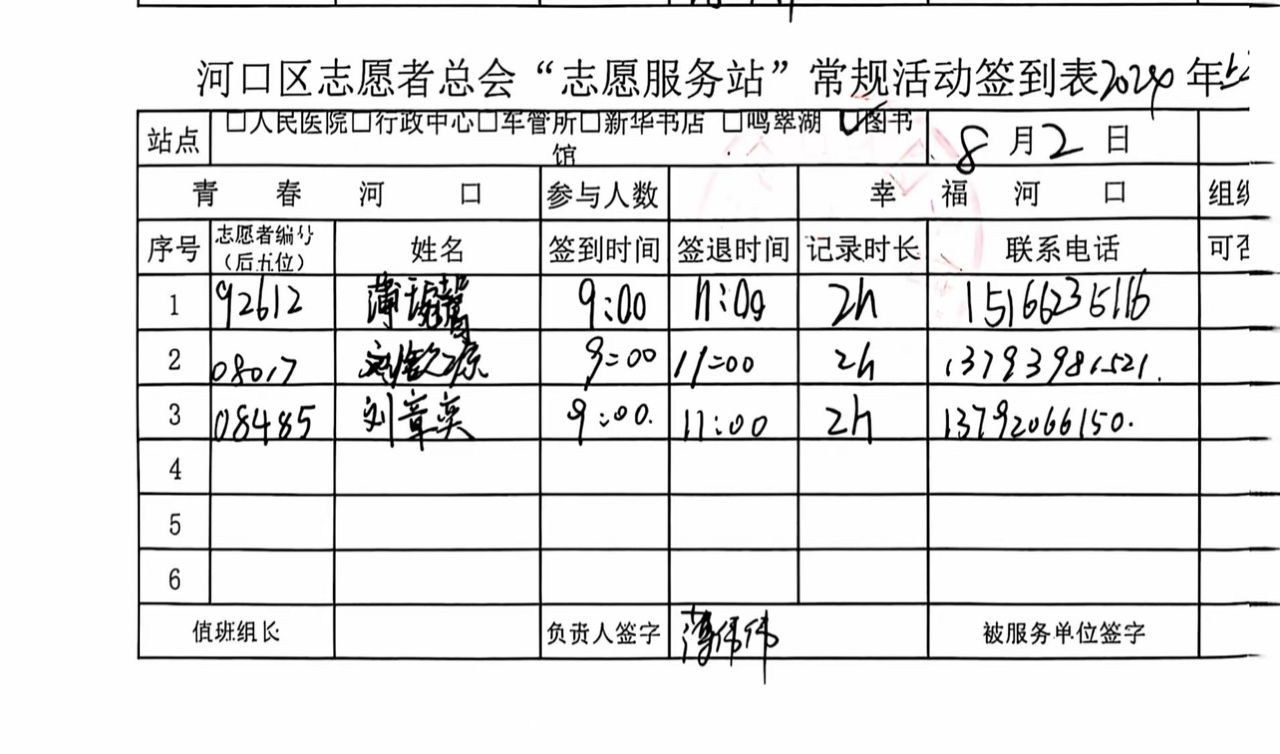 河口区志愿者总会“志愿服务站”常规活动签到表2024年上
站点 □人民医院□行政中心□车管所□新华书店 □鸣翠湖 ☑图书馆 8月2日
青春河口 参与人数 幸福河口 组织
序号 志愿者编号（后五位） 姓名 签到时间 签退时间 记录时长 联系电话 可否
1 92612 9:00 11:00 2h 15166235116
2 08017 9:00 11:00 2h 13793981521.
3 08485 刘章奕 9:00. 11:00 2h 13792066150.
4
5
6
值班组长 负责人签字 薄伟伟 被服务单位签字